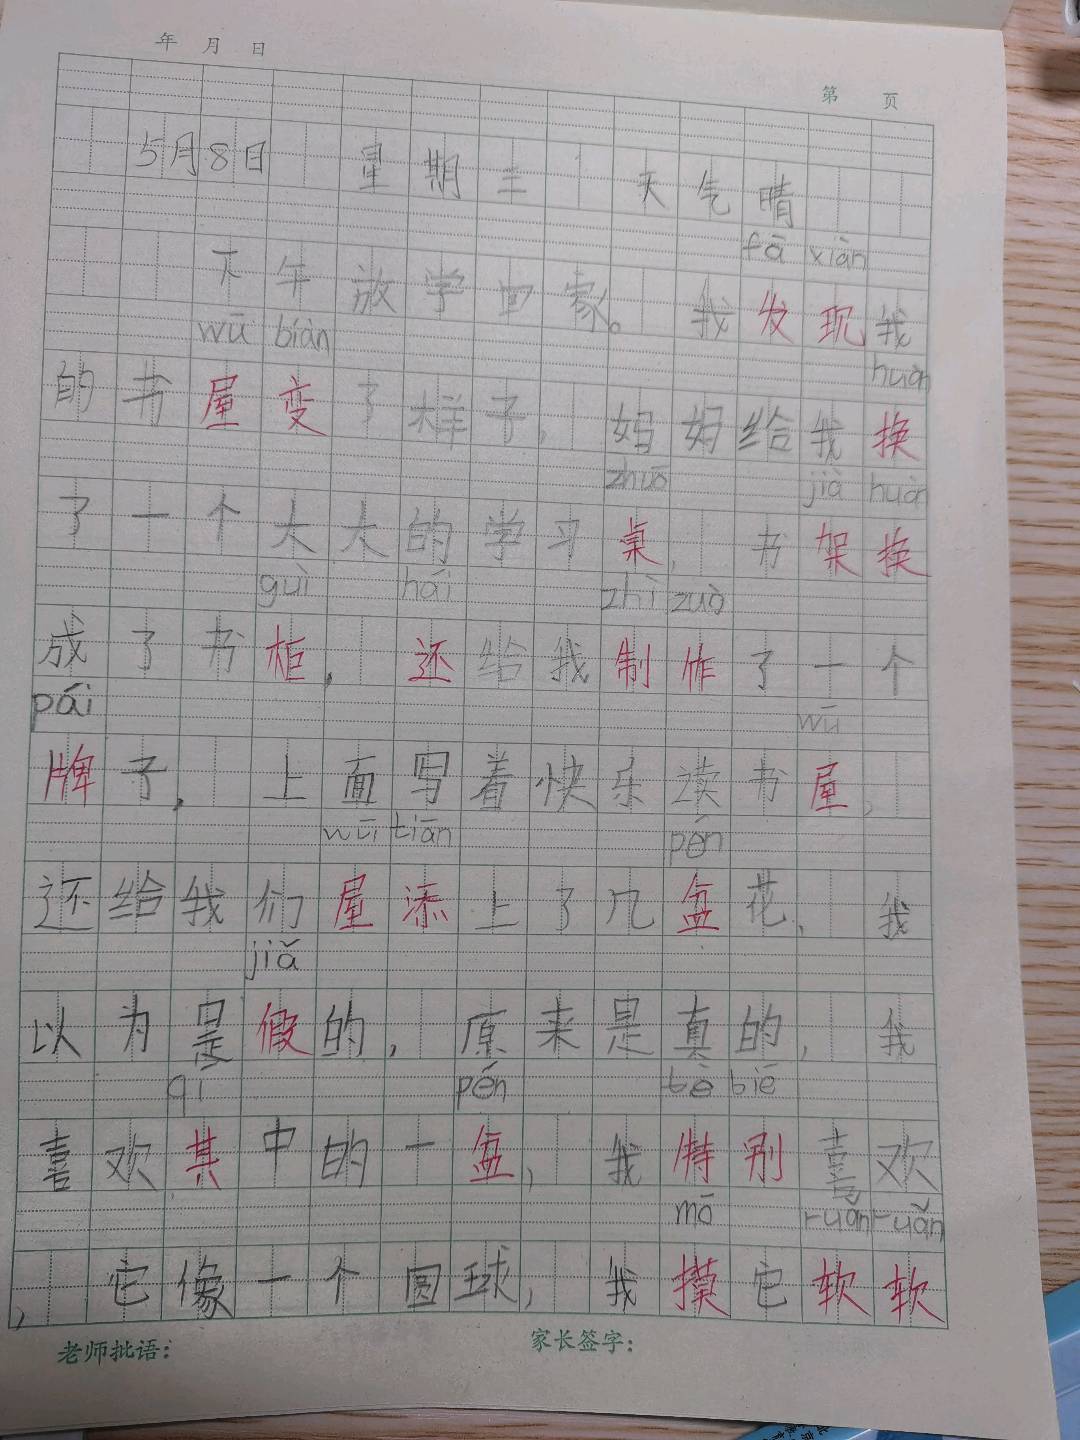 年 月 日
第 页
5月8日 星期三 天气晴
fā xiàn
下午放学回家。我发现我
wū biàn huàn
的书屋变了样子,妈妈给我换
zhuō jià huàn
了一个大大的学习桌,书架换
guì hái zhì zuò
成了书柜,还给我制作了一个
pái wū
牌子,上面写着快乐读书屋,
wūi tiān pén
还给我们屋添上了几盆花,我
jiǎ
以为是假的,原来是真的,我
qí pén tè bié
喜欢其中的一盆,我特别喜欢
mō ruǎn ruǎn
,它像一个圆球,我摸它软软
老师批语: 家长签字: